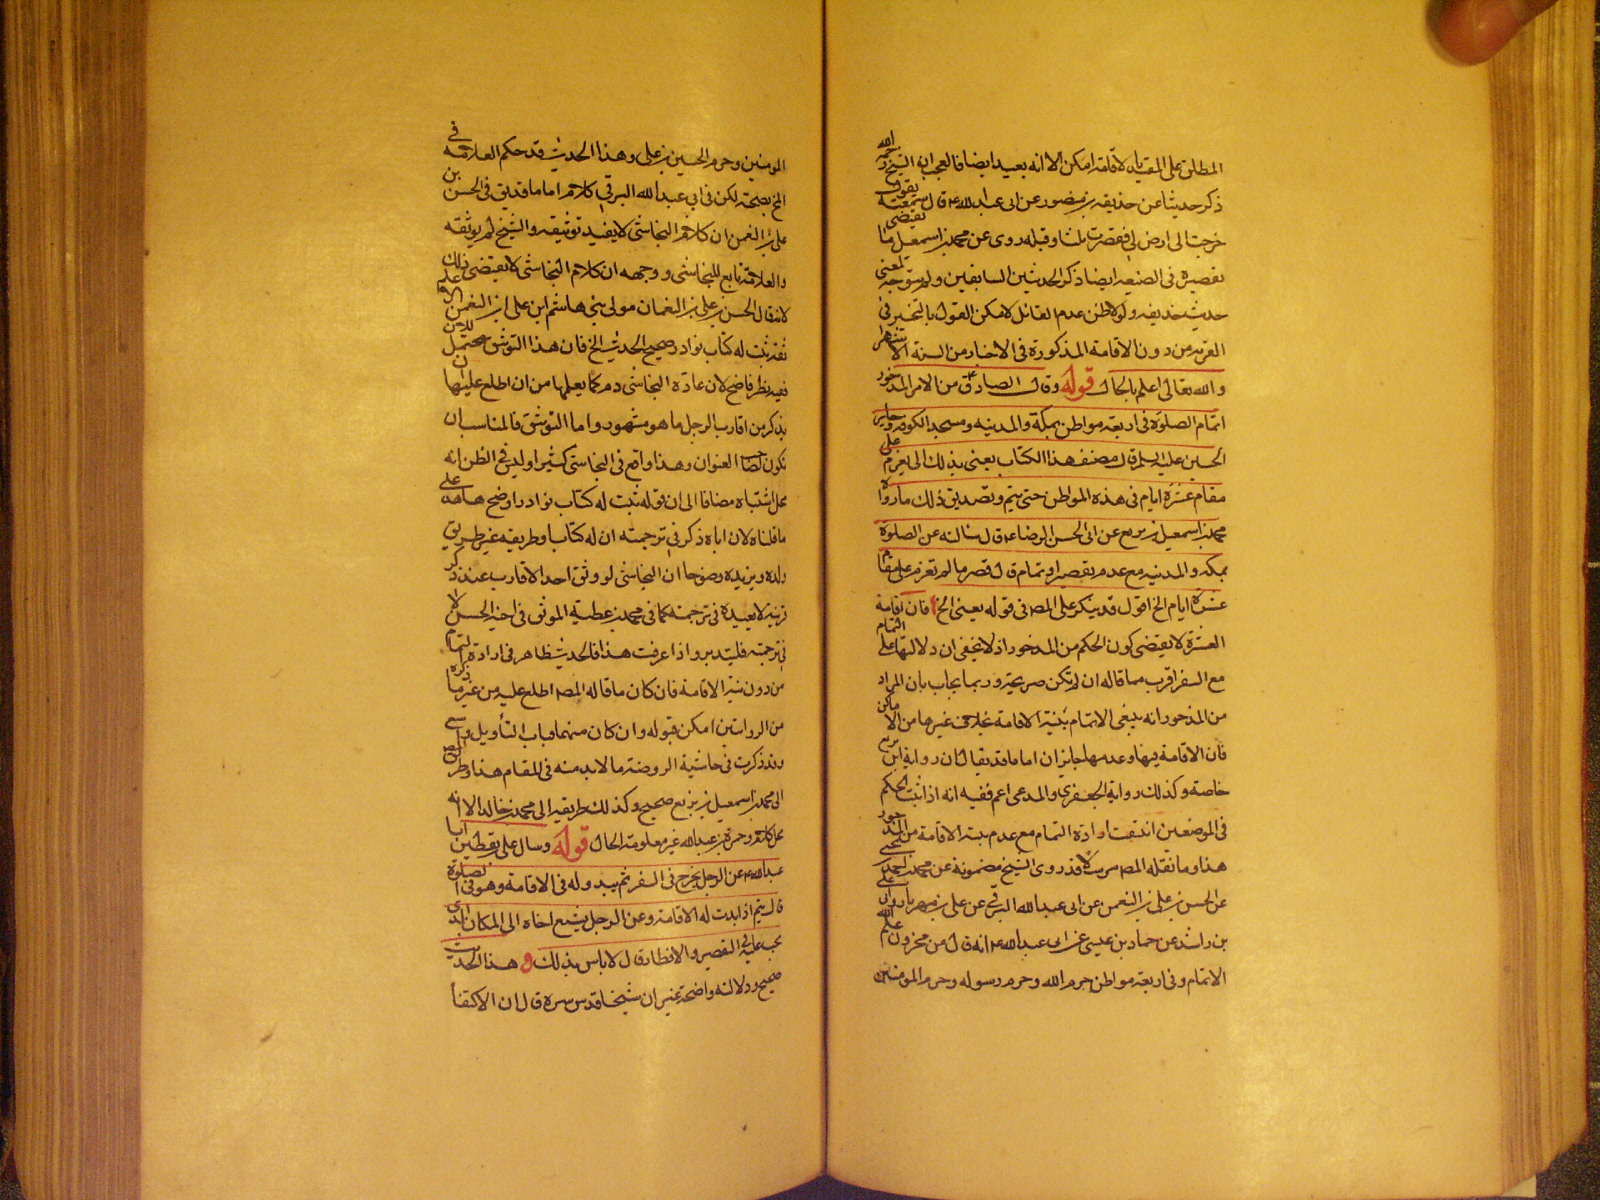 المطلق على المقيد لاقامة امكن الا انه بعيد ايضا فالعجب ان الشيخ رحمه الله
ذكر حديثا عن حذيفه بن منصور عن ابى عبد الله ع قال سمعته يقول
خرجت الى ارض لى فقصرت ثلثا وقبله روى عن محمد بن اسمعيل ما يقتضى
تقصيره فى الضيعه ايضا ذكر الحديثين السابقين ولم يتوجه لمعنى
حديث حذيفه ولولا ظن عدم القائل لامكن القول بالتخيير فى
القريه من دون الاقامة المذكورة فى الاخبار من الستة الاشهر
والله تعالى اعلم بالحال قوله وقال الصادق ع من الامر المذخور
اتمام الصلوة فى اربعة مواطن بمكة والمدينه ومسجد الكوفه وحاير
الحسين عليه السلم قال مصنف هذا الكتاب يعنى بذلك ان يعزم على
مقام عشرة ايام فى هذه المواطن حتى يتم وتصديق ذلك ما رواه
محمد بن اسمعيل بن بزيع عن ابى الحسن الرضا ع قال سالته عن الصلوة
بمكه والمدينه مع عدم تقصير او تمام قال قصر ما لم تعزم على مقام
عشرة ايام الخ اقول قد ينكر على المصـ فى قوله يعنى الخ فان اقامة
العشرة لا يقتضى كون الحكم من المذخور اذ لا يخفى ان دلالتها على التمام
مع السفر اقرب مما قاله ان لم تكن صريحة وربما يجاب بان المراد
من المذخور انه ينبغى الاتمام بنية الاقامة بخلاف غيرها من الاماكن
فان الاقامة فيها وعدمها جايزان اما ما قد يقال ان رواية ابن بزيع
خاصة وكذلك رواية الجعفرى والمدعى اعم ففيه انه اذا ثبت الحكم
فى الموضعين انتفت ارادة التمام مع عدم نية الاقامة من المذخور
هذا وما نقله المصـ مرسلا قد روى الشيخ مضمونه عن محمد بن احمد بن يحيى
عن الحسن بن على بن النعمن عن ابى عبد الله البرقى عن على بن مهزيار وابى على
بن راشد عن حماد بن عيسى عن ابى عبد الله ع انه قال من مخزون علم الله
الاتمام فى اربعة مواطن حرم الله وحرم رسوله وحرم امير المومنين
المومنين وحرم الحسين بن على وهذا الحديث قد حكم العلامة فى
المخ بصحته لكن فى ابى عبد الله البرقى كلام اما ما قد يق فى الحسن بن
على بن النعمن ان كلام النجاشى لا يفيد توثيقه والشيخ لم يوثقه
والعلامة تابع للنجاشى ووجهه ان كلام النجاشى لا يقتضى ذلك
لانه قال الحسن بن على بن النعمان مولى بنى هاشم ابن على بن النعمن الاعلم
ثقة ثبت له كتاب نوادر صحيح الحديث الخ فان هذا التوثيق محتمل للابن
ففيه نظر فاضح لان عادة النجاشى ره كما يعلمها من ان اطلع عليها ان
يذكر من اقارب الرجل ما هو مشهور واما التوثيق فالمناسب ان
يكون لصاحب العنوان وهذا واقع فى النجاشى كثيرا وليس فى الظن انه
محل اشتباه مضافا الى ان قوله ثبت له كتاب نوادر اوضح شاهد على
ما قلناه لان اباه ذكر فى ترجمته ان له كتابا وطريقه غير طريق
ولده ويزيده وضوحا ان النجاشى لو وثق احد الاقارب عند ذكر
قرينه لا يعيده فى ترجمته كما فى محمد بن عطيه الموثق فى اخيه الحسن لا
فى ترجمته فليتدبر واذا عرفت هذا فالحديث ظاهر فى ارادة اتمام
من دون نية الاقامة فان كان ما قاله المصـ اطلع عليه من غير ما ذكره
من الروايتين امكن قبوله وان كان منهما فباب التأويل واسع
وقد ذكرت فى حاشية الروضة ما لابد منه فى المقام هذا وطريق المصـ
الى محمد بن اسمعيل بن بزيع صحيح وكذلك طريقه الى محمد بن خالد الا انه
محل كلام وحمزه بن عبد الله غير معلومة الحال قوله وسال على بن يقطين ابا
عبد الله ع عن الرجل يخرج فى السفر ثم يبدو له فى الاقامة وهو فى الصلوة
قال يتم اذا بدت له الاقامة وعن الرجل يشيع اخاه الى المكان الذى
يجب عليه فيه التقصير والافطار قال لا باس بذلك و هذا الحديث
صحيح ودلالته واضحة غير ان شيخنا قدس سره قال ان الاكتفا